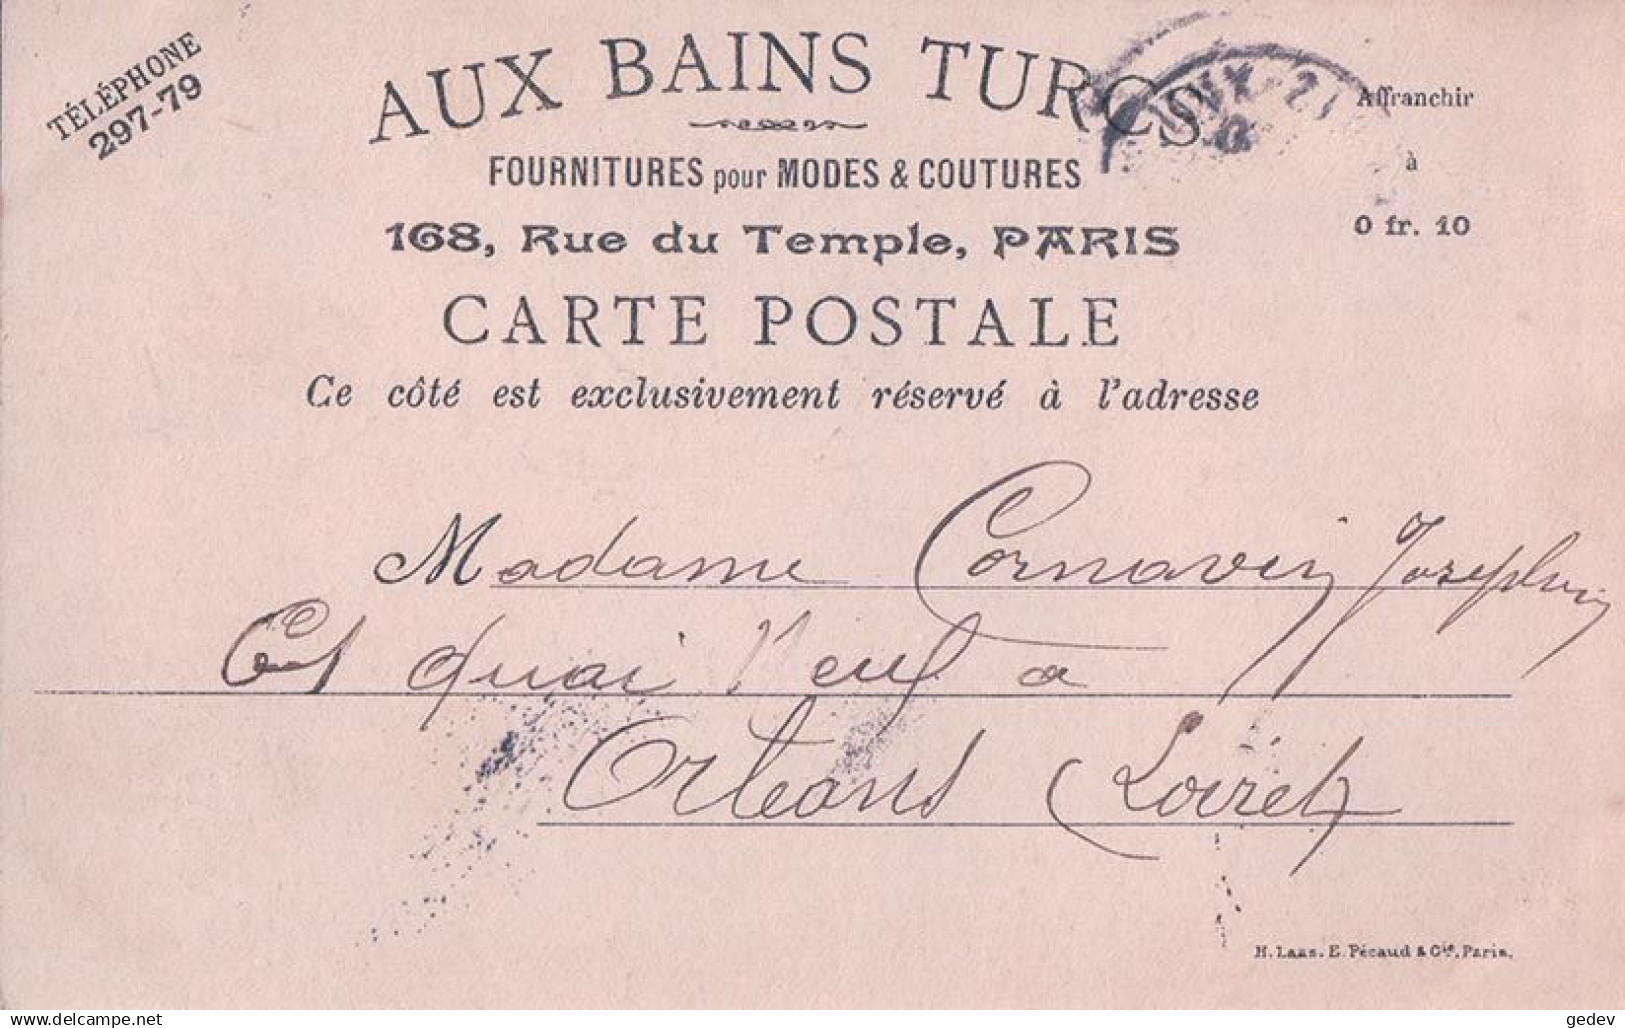 TÉLÉPHONE
297-79
AUX BAINS TURCS
Affranchir
à
0 fr. 10
FOURNITURES pour MODES & COUTURES
168, Rue du Temple, PARIS
CARTE POSTALE
Ce côté est exclusivement réservé à l'adresse
Madame Cornavin Joséphine
quai Neuf a
Orleans (Loiret)
H. Laas. E. Pécaud & Cie, Paris.
delcampe.net
gedev